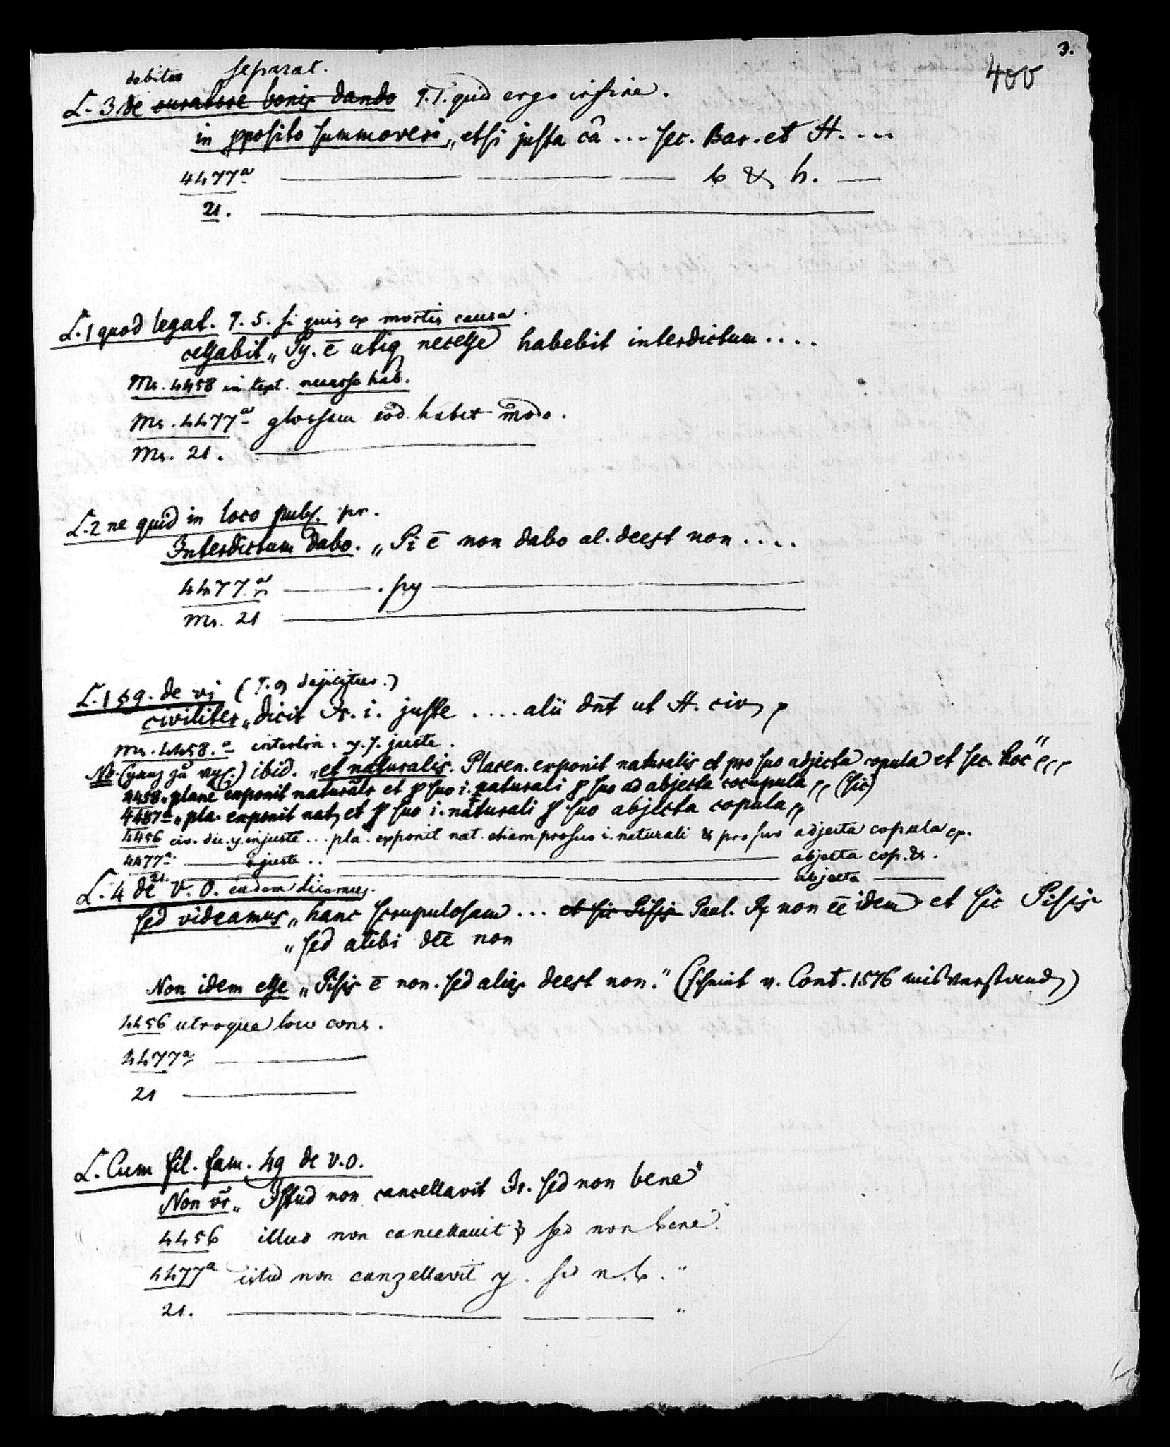 3.
400
debitur separat.
L. 3. de curatore bonis dando T. T. quid ergo in fine.
in pposito summoveri „ etsi justa câ ... sec. Bar. et H. ....
4477a b & h.
21.
L. 1 quod legat. T. 5. si quis ex mortis causa.
cessabit „ Py. ē utiq necesse habebit interdictum ....
Ms. 4458 in text. necesse hab.
Ms. 4477a glossam eod. habet modo.
Ms. 21.
L. 2 ne quid in loco publ. pr.
Interdictum dabo. „ Pi ē non dabo al. deest non ....
4477a . py
Ms. 21
L. 1 § 9. de vi (T. 9 dejicitur.)
civiliter „ dicit Ir. i. juste .... alii dnt ut H. civ
Ms. 4458.a interlin. y. J. juste.
NB ibid. „ et naturalis. Placen. exponit naturalis et pro suo adjecta copula et sec. hoc"
4458. plane exponit naturals et p suo i. naturali p suo ad abjecta cocupula (sic)
4487a „ pla. exponit nat, et p suo i. naturali p suo abjecta copula
4456 civ. dic. y. injuste ... pla. exponit nat. etiam pro suo i. naturali & pro suo adjecta copula
4477a juste .. abjecta cop. &.
21. abjecta
L. 4 de V. O. eadem dicemus.
sed videamus „ hanc scrupulosam ... et sic Pisis Paul. non eē idem et sic Pisis
„ sed alibi dte non
Non idem esse „ Pisis ē non. sed aliis deest non." (scheint v. Cont. 1576 misverstand)
4456 utroque loco cons.
4477a
21
L. Cum fil. fam. 49 de V. O.
Non vr „ Istud non cancellavit Ir. sed non bene"
4456 illud non cancellauit sed non bene"
4477a istud non canzellavit y. sed n. b. "
21. "